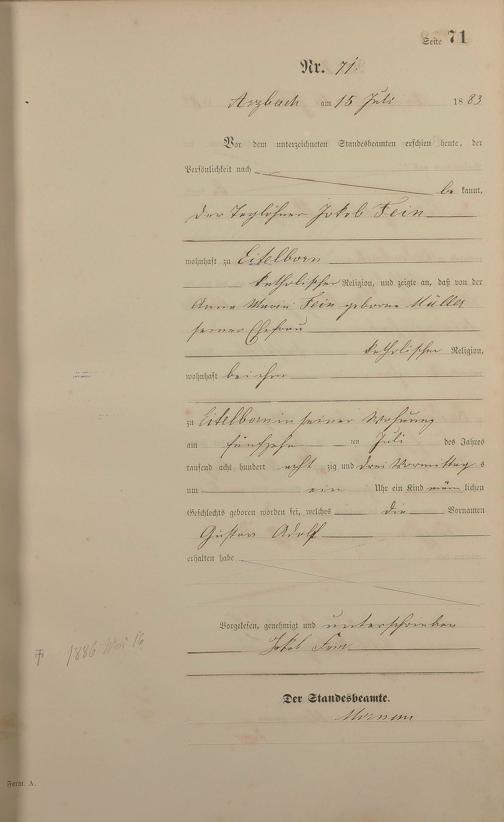 Seite 71
Nr. 71.
Arzbach am 15 Juli 1883
Vor dem unterzeichneten Standesbeamten erschien heute, der
Persönlichkeit nach
be kannt,
der Taglöhner Jakob Fein
wohnhaft zu Eitelborn
katholischer Religion, und zeigte an, daß von der
Anna Maria Fein geborne Müller
seiner Ehefrau
katholischer Religion,
wohnhaft bei ihm
zu Eitelborn in seiner Wohnung
am fünfzehn ten Juli des Jahres
tausend acht hundert acht zig und drei Vormittag s
um ein Uhr ein Kind männ lichen
Geschlechts geboren worden sei, welches die Vornamen
Gustav Adolf
erhalten habe
Vorgelesen, genehmigt und unterschrieben
Jakob Fein
Der Standesbeamte.
† 1886 Mai 16
Form. A.